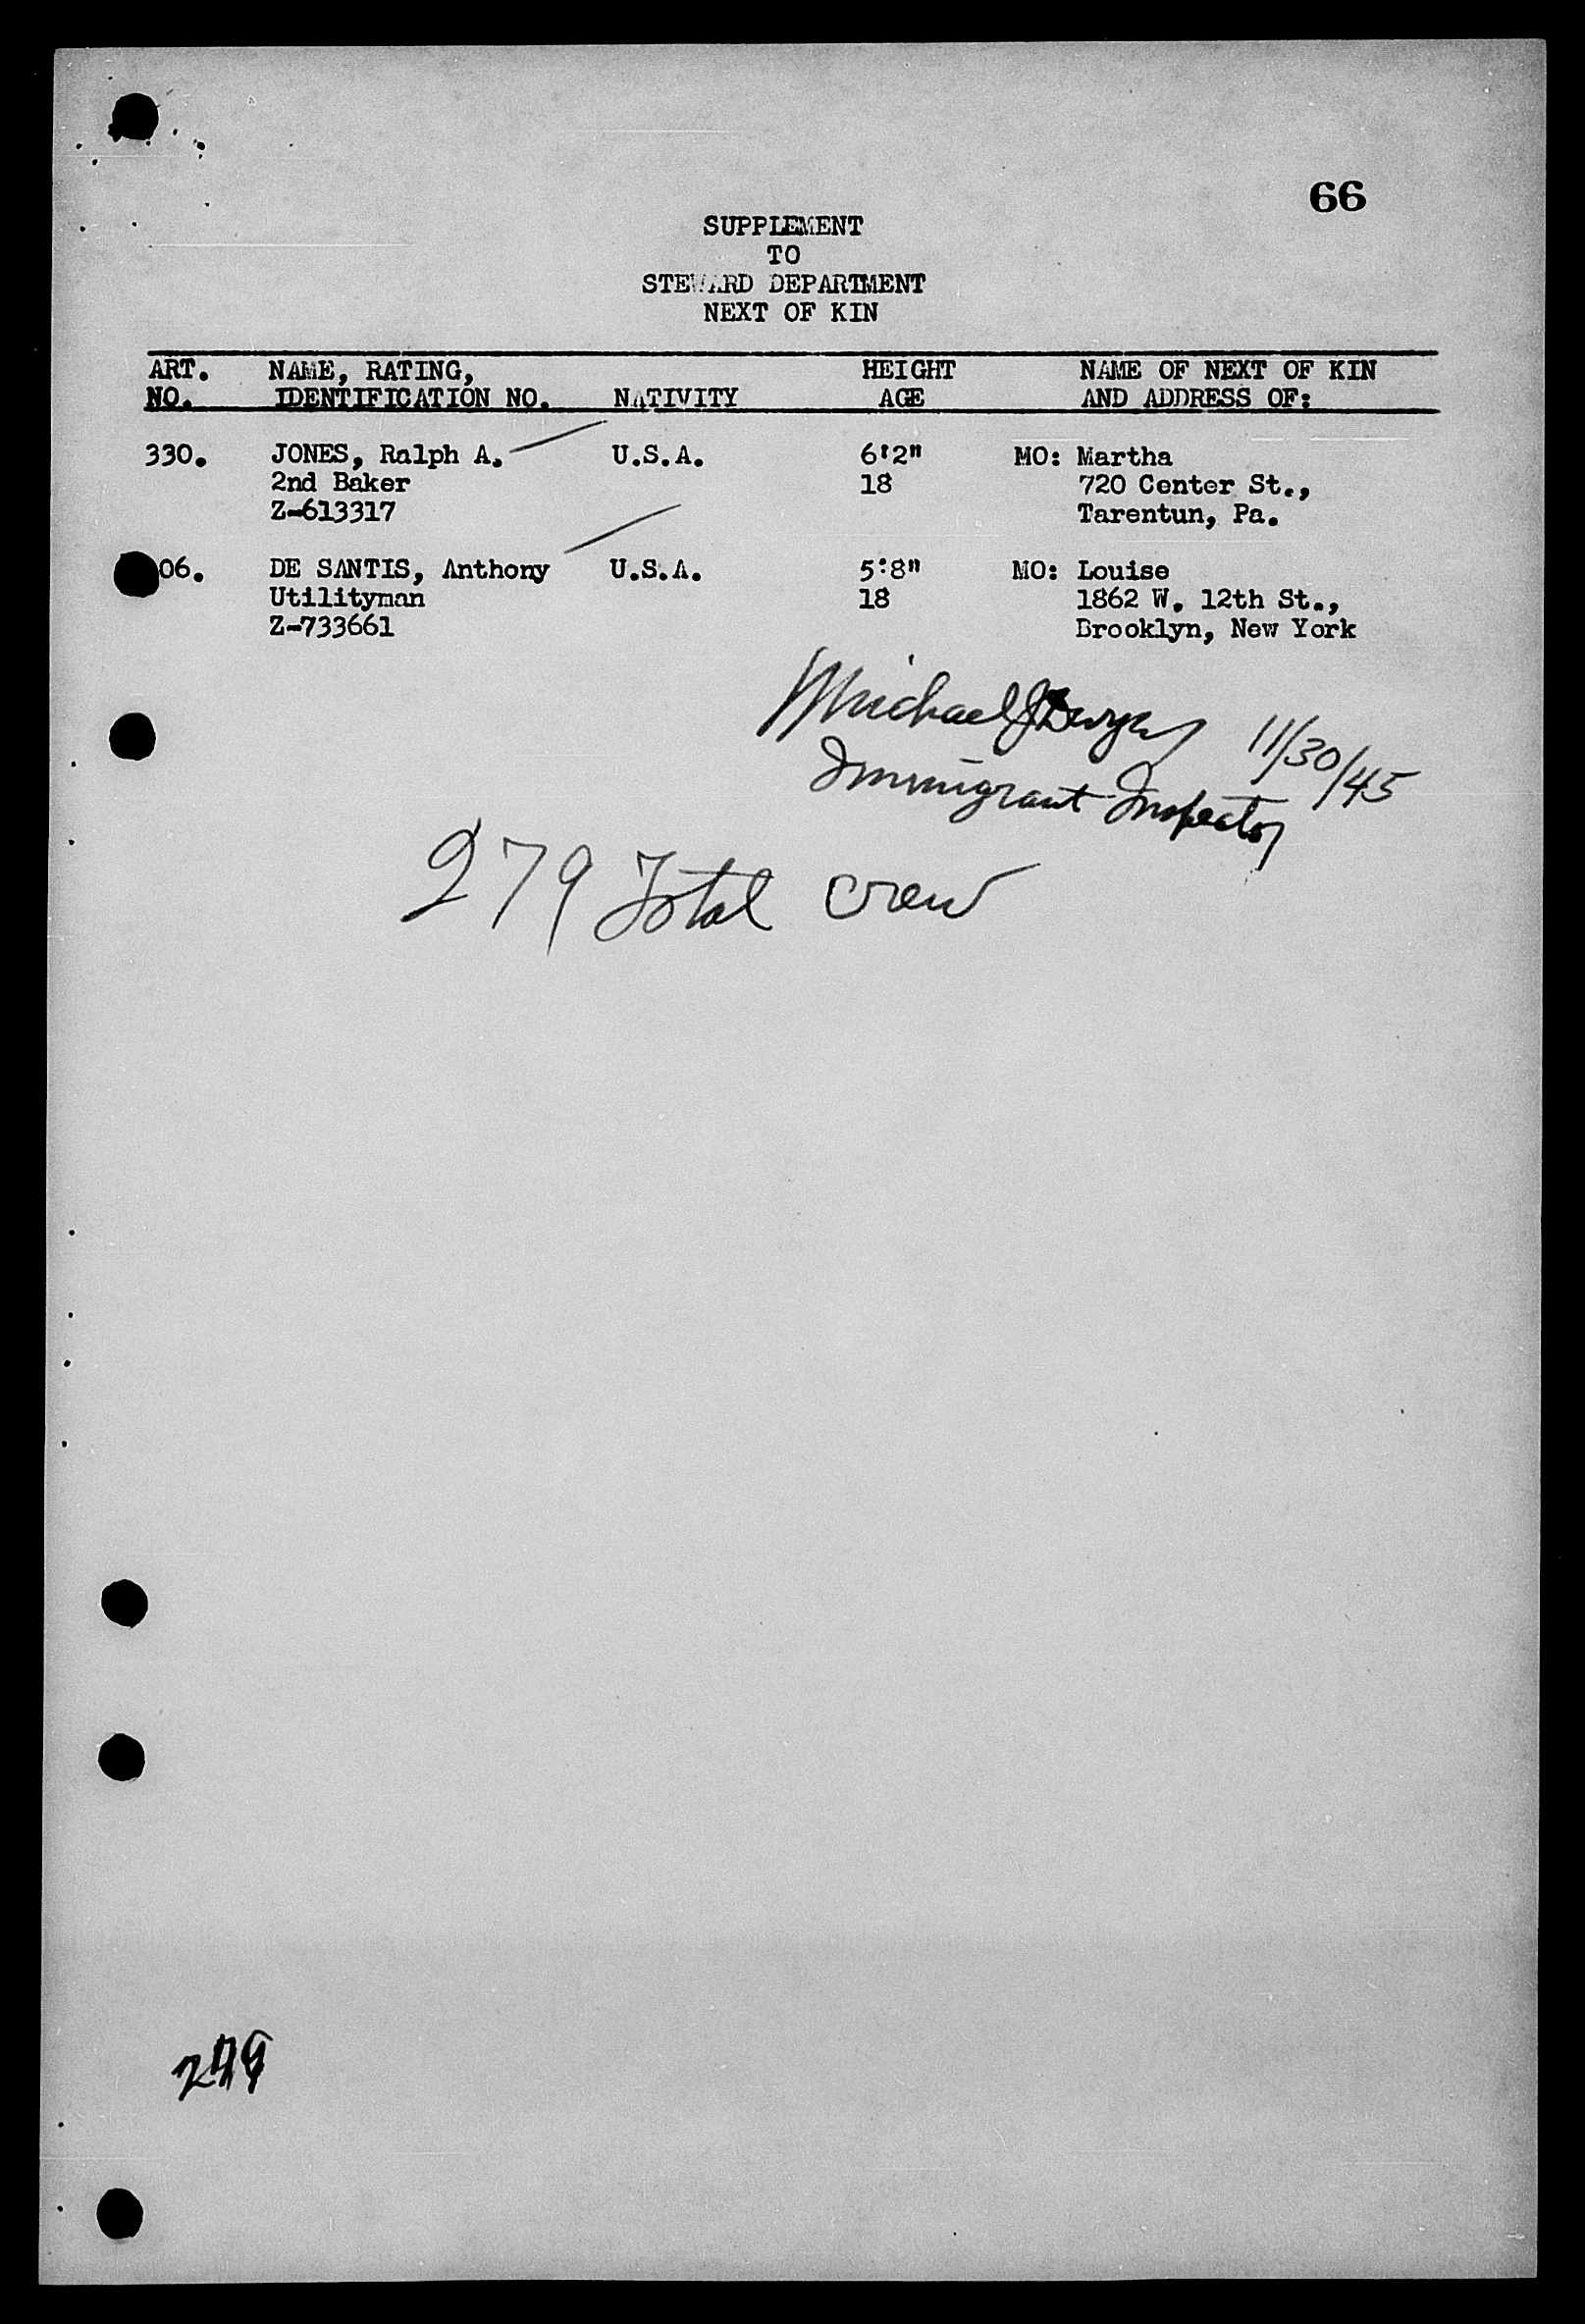 66
SUPPLEMENT
TO
STEWARD DEPARTMENT
NEXT OF KIN
ART. NAME, RATING, HEIGHT NAME OF NEXT OF KIN
NO. IDENTIFICATION NO. NATIVITY AGE AND ADDRESS OF:
330. JONES, Ralph A. U.S.A. 6'2" MO: Martha
2nd Baker 18 720 Center St.,
Z-613317 Tarentun, Pa.
06. DE SANTIS, Anthony U.S.A. 5'8" MO: Louise
Utilityman 18 1862 W. 12th St.,
Z-733661 Brooklyn, New York
Michael J Dwyer 11/30/45
Immigrant Inspector
279 Total crew